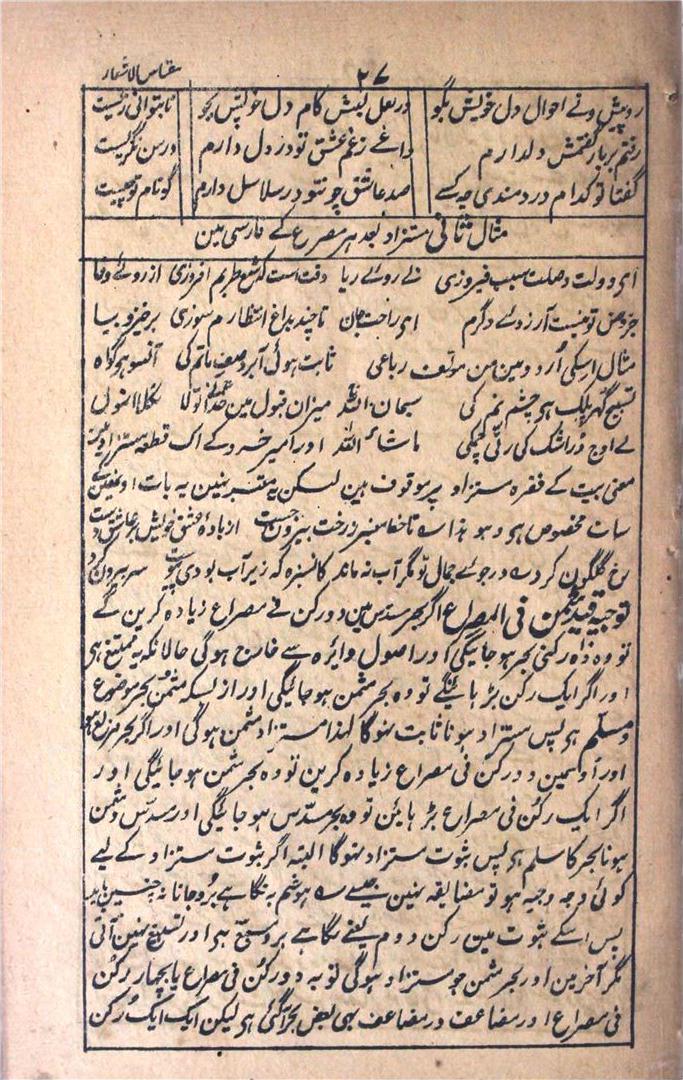 ۲۷
مقیاس الاشعار
رو پیش وے احوال دل خویش بگو در لعل لبش کام دل خویش بجو تا بتوانی زیست
رفتم بر یار گفتمش دلدارم داغے ز غم عشق تو در دل دارم در من نگریست
گفتا تو کدام دردمندی چہ کسے صد عاشق چونتو در سلاسل دارم گو نام تو چیست
مثال ثانی مستزاد بعد ہر مصرع کے فارسی مین
ای دولت وصلت سبب فیروزی نے روے ریا وقت است کہ شمع طربم افروزی از روے وفا
جز وصل تو نیست آرزوے دگرم ای راحت جان تا چند بداغ انتظارم سوزی برخیز و بیا
مثال اسکی اُردو مین من مولف رباعی ثابت ہوئی آبرو صف ماتم کی آنسو ہر گواہ
تسبیح گہر پلک ہر چشم نم کی سبحان اللہ میزان قبول مین تولا نکلا انمول
لے اوج دُر اشک کی رتی چمکی ماشاء اللہ اور امیر خسرو کے اک قطعہ مستزاد مین
معنی بیت کے فقرہ مستزاد پر موقوف ہین لیکن یہ معتبر نہین یہ بات
سات مخصوص ہو وہو ہذا سه تا خط معنبر ز رخت بیرون جست از بادۂ عشق خویش ہر عاشق مست
رخ گلگون کرد سه در جوے جمال تو مگر آب نہ ماند کان سبزہ کہ زیر آب بودی سر بیرون کرد
توجیہ قید مثمن فی المصراع اگر بحر مسدس مین دو رکن فی مصراع زیادہ کرین گے
تو وہ دہ رکنی بحر ہو جائیگی اور اصول دائرہ سے خارج ہوگی حالانکہ یہ ممتنع ہی
اور اگر ایک رکن بڑہائینگے تو وہ بحر مثمن ہو جائیگی اور ازبسکہ مثمن بحر موضوع
و مسلم ہر پس مستزاد ہونا ثابت نہوگا لہذا مستزاد مثمن ہوگی اور اگر بحر مربع ہو
اور اوسمین دو رکن فی مصراع زیادہ کرین تو وہ بحر مثمن ہو جائیگی اور
اگر ایک رکن فی مصراع بڑہائین تو وہ بحر مسدس ہو جائیگی اور مسدس و مثمن
ہونا بحر کا مسلم ہر پس ثبوت مستزاد نہوگا البتہ اگر ثبوت مستزاد کے لیے
کوئی وجہ وجیہ ہو تو مضائقہ نہین جیسے سه ہوشم بہ نگاہے بردہ جانا نہ چنین باید
پس اسکے ثبوت مین رکن دوم یعنے نگاہے برد مسبغ ہی اور تسبیغ نہین آتی
مگر آخر مین اور بحر مثمن جو مستزاد ہوگی تو بہ دو رکن فی مصراع یا بچہار رکن
فی مصراع اور مضاعف در مضاعف بھی بعض بحر آگئی ہی لیکن ایک ایک رکن